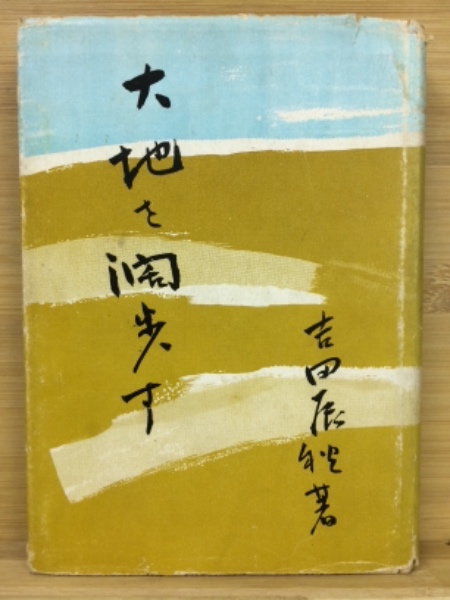 大地を闊歩す
吉田辰秋著